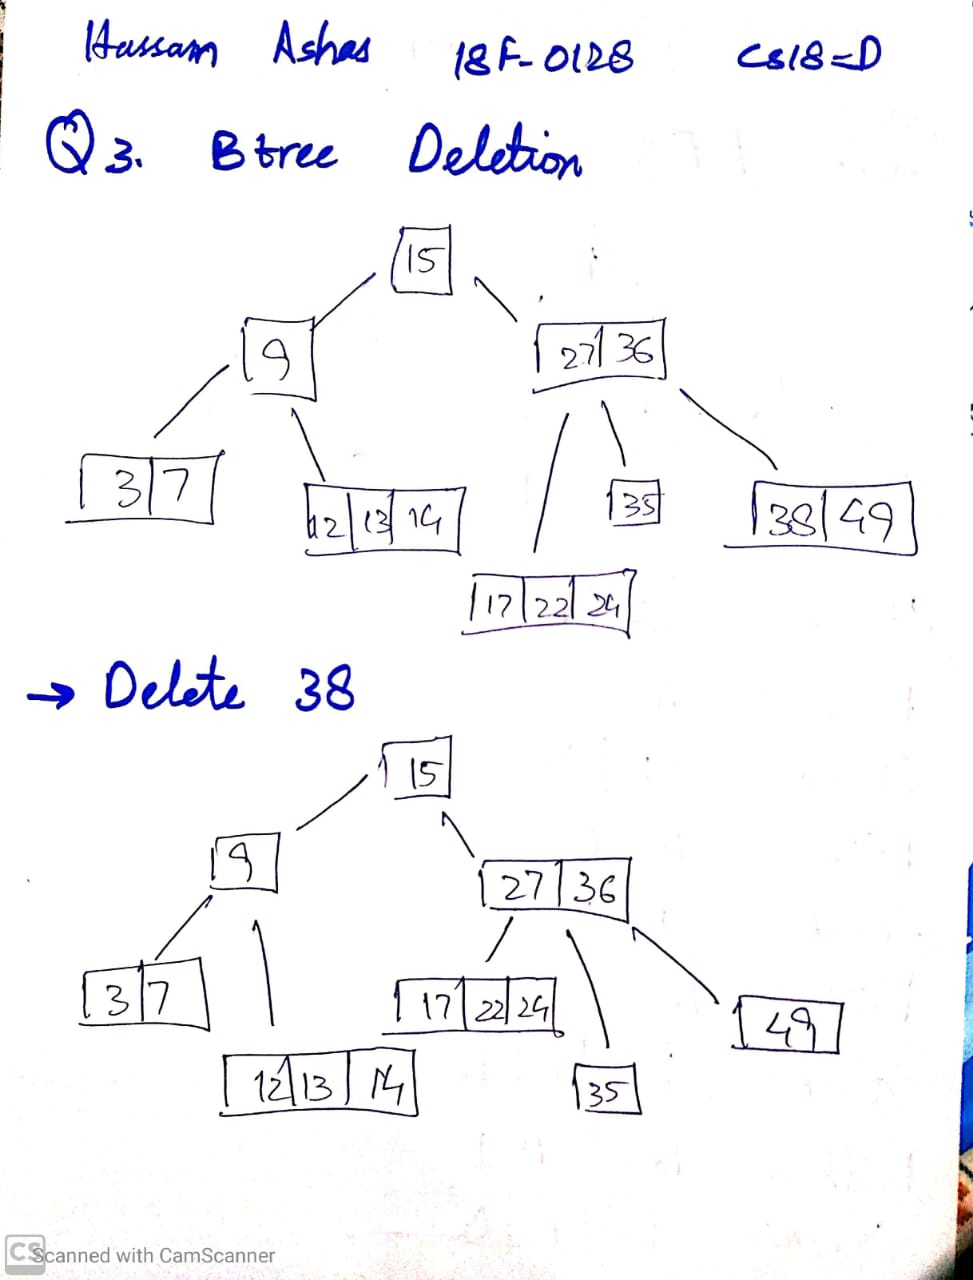 Hassam Ashas 18F-0128 CS18-D
Q3. Btree Deletion
15
9 27 36
3 7 12 13 14 35 38 49
17 22 24
→ Delete 38
15
9 27 36
3 7 17 22 24 49
12 13 14 35
CS Scanned with CamScanner